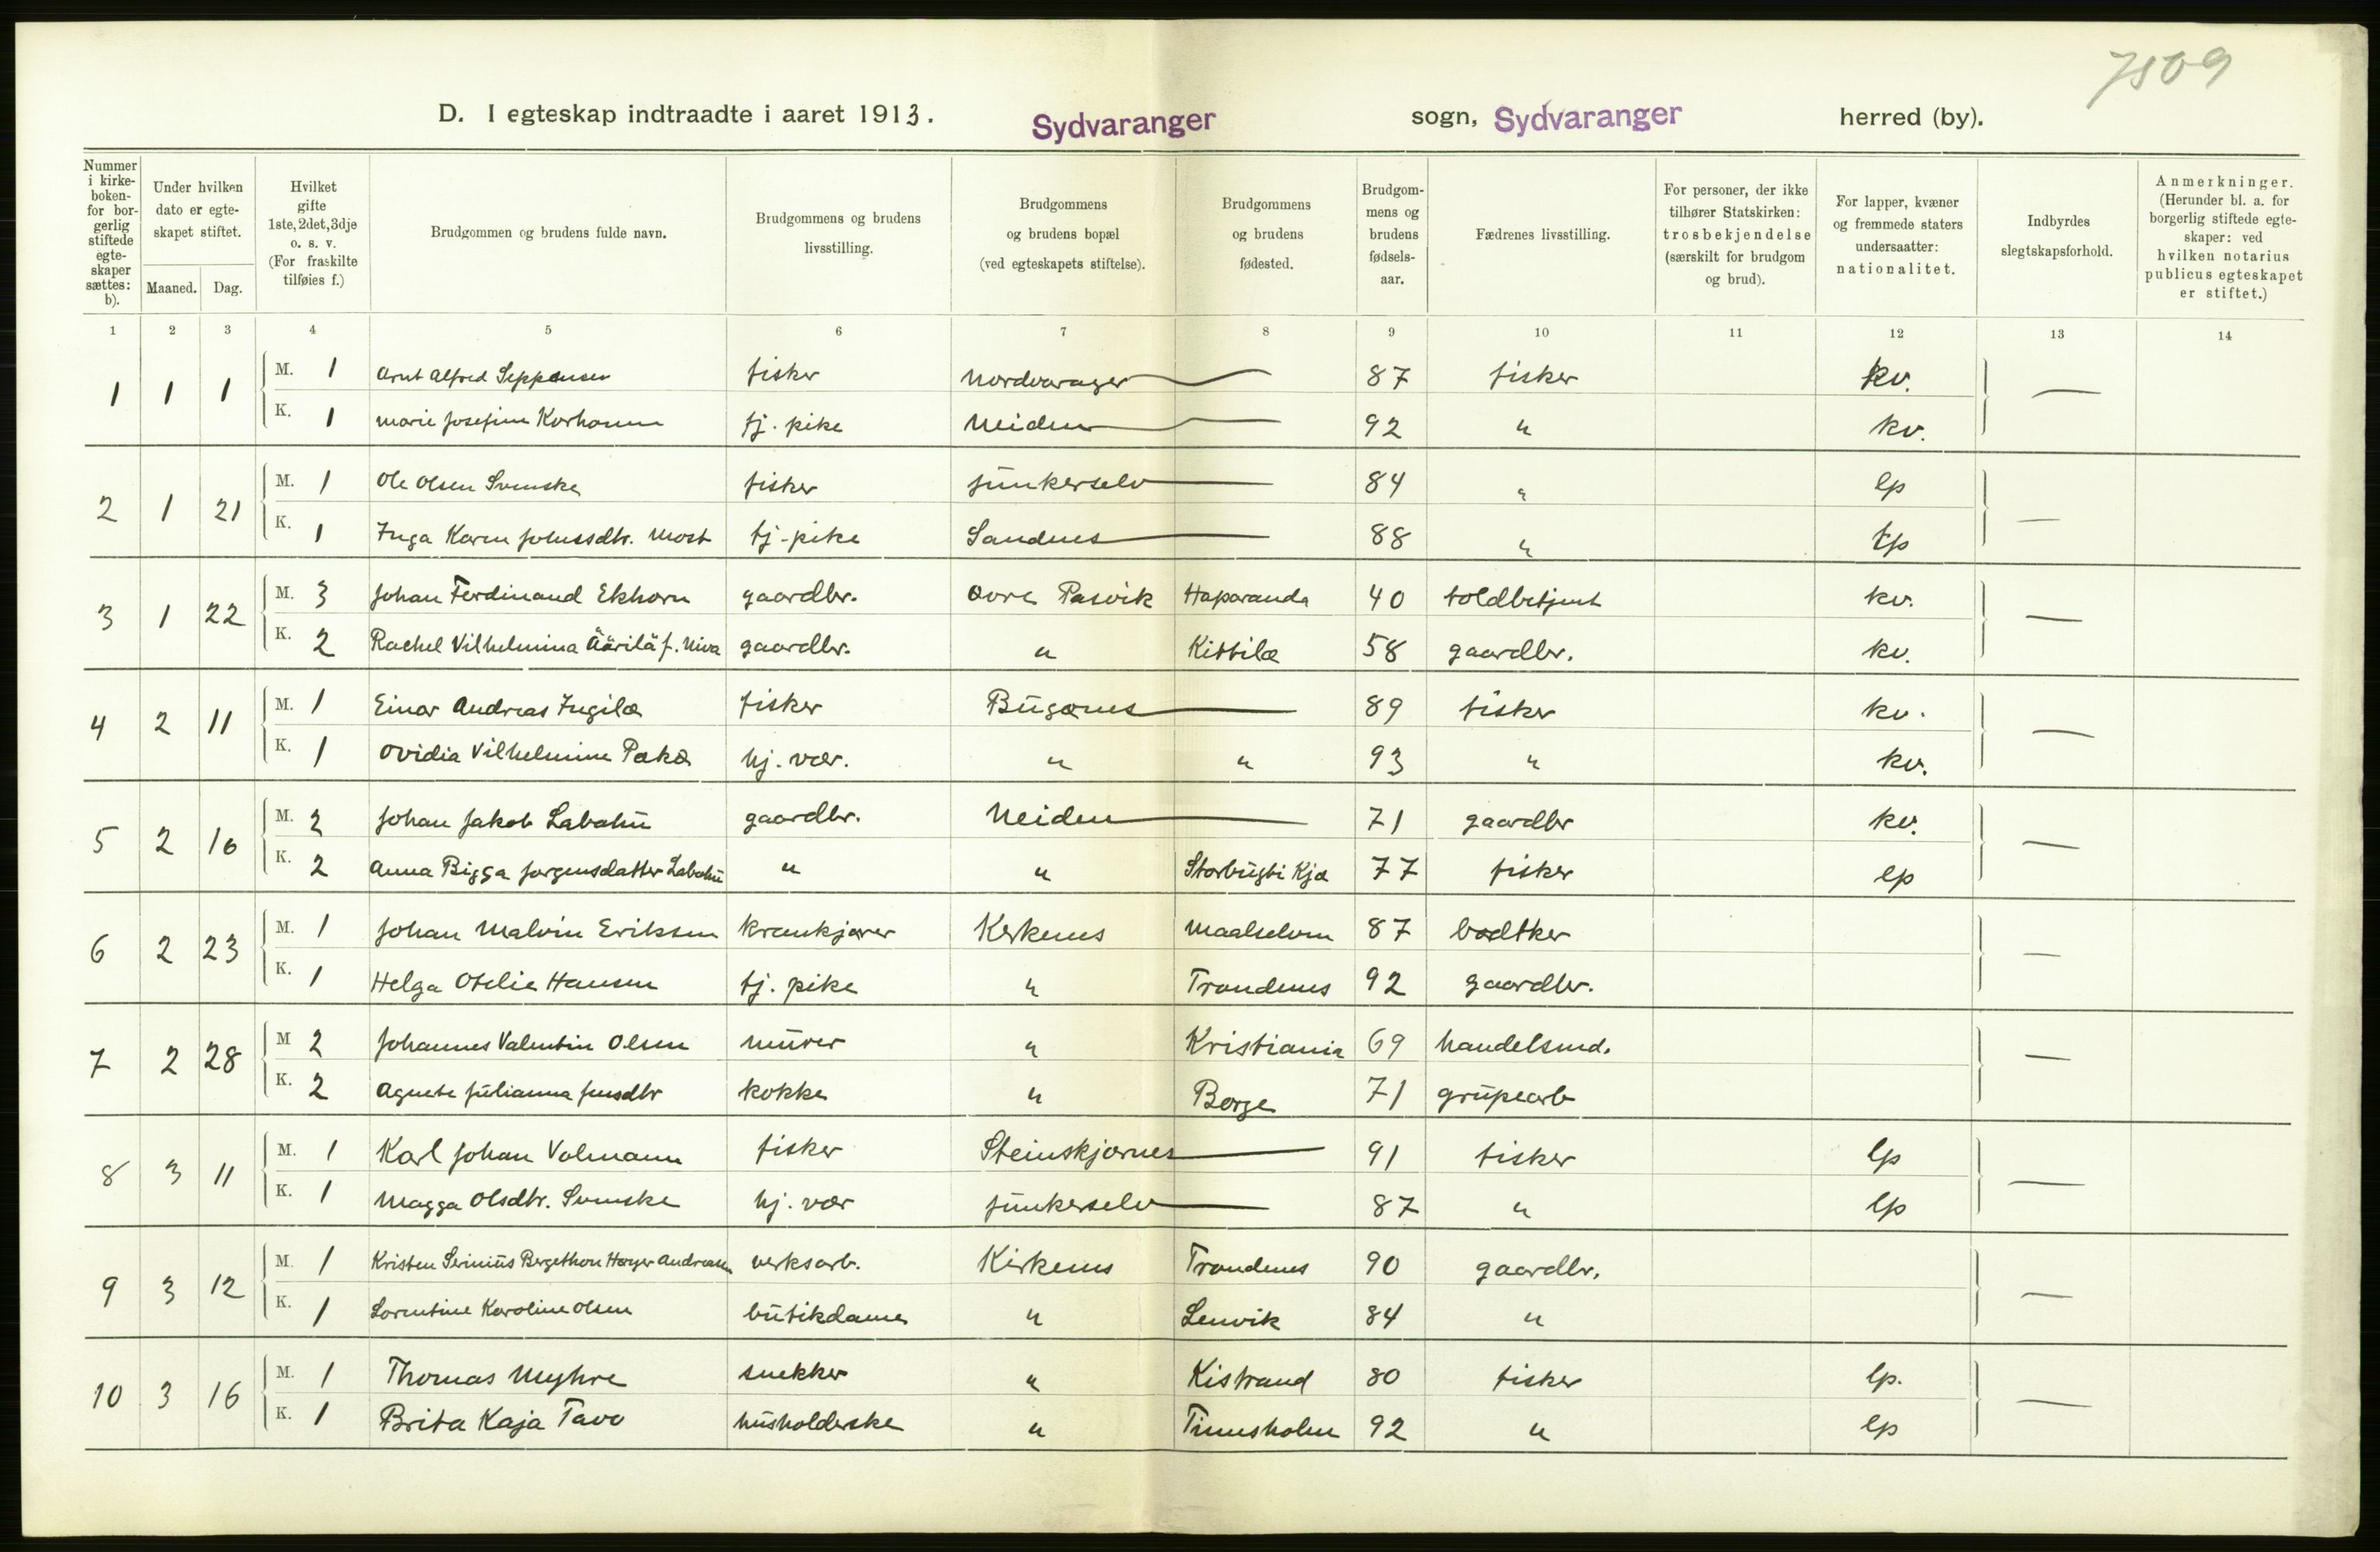 7509
D. I egteskap indtraadte i aaret 1913. Sydvaranger sogn, Sydvaranger herred (by).
Nummer i kirke-boken- for bor-gerlig stiftede egte-skaper sættes: b).
Under hvilken dato er egte-skapet stiftet.
Maaned. Dag.
Hvilket gifte 1ste, 2det, 3dje o. s. v. (For fraskilte tilføies f.)
Brudgommen og brudens fulde navn.
Brudgommens og brudens livsstilling.
Brudgommens og brudens bopæl (ved egteskapets stiftelse).
Brudgommens og brudens fødested.
Brudgom-mens og brudens fødsels-aar.
Fædrenes livsstilling.
For personer, der ikke tilhører Statskirken: trosbekjendelse (særskilt for brudgom og brud).
For lapper, kvæner og fremmede staters undersaatter: nationalitet.
Indbyrdes slegtskapsforhold.
Anmerkninger. (Herunder bl. a. for borgerlig stiftede egte-skaper: ved hvilken notarius publicus egteskapet er stiftet.)
1 2 3 4 5 6 7 8 9 10 11 12 13 14
1 1 1 M. 1 Arnt Alfred Seppänsen fisker Nordvaranger — 87 fisker kv. —
K. 1 Marie Josefine Korhonen tj. pike Neiden — 92 " kv.
2 1 21 M. 1 Ole Olsen Svenske fisker Junkerselv — 84 " lp —
K. 1 Inga Karen Johnsdtr. Most tj. pike Sandnes — 88 " lp
3 1 22 M. 3 Johan Ferdinand Ekhorn gaardbr. Øvre Pasvik Haparanda 40 toldbetjent kv. —
K. 2 Rachel Vilhelmina Äärilä f. Niva gaardbr. " Kittilæ 58 gaardbr. kv.
4 2 11 M. 1 Einar Andreas Ingilæ fisker Bugønes — 89 fisker kv. —
K. 1 Ovidia Vilhelmine Pækæ hj. vær. " " 93 " kv.
5 2 16 M. 2 Johan Jakob Labahü gaardbr. Neiden — 71 gaardbr kv. —
K. 2 Anna Bigga Jørgensdatter Labahü " " Storbugti Kjø 77 fisker lp
6 2 23 M. 1 Johan Malvin Eriksen krankjører Kirkenes Maalselven 87 bødtker —
K. 1 Helga Otelie Hansen tj. pike " Trondenes 92 gaardbr.
7 2 28 M 2 Johannes Valentin Olsen murer " Kristiania 69 handelsmd. —
K. 2 Agnete Julianna Jensdtr kokke " Borge 71 grubearb
8 3 11 M. 1 Karl Johan Valmann fisker Steinskjærnes — 91 fisker lp —
K. 1 Magga Olsdtr. Svenske hj. vær Junkerselv — 87 " lp
9 3 12 M. 1 Kristen Serinius Bergethon Høyer Andreasen verksarb. Kirkenes Trondenes 90 gaardbr. —
K. 1 Lorentine Karoline Olsen butikdame " Lenvik 84 "
10 3 16 M. 1 Thomas Myhre snekker " Kistrand 80 fisker lp. —
K. 1 Brita Kaja Tavo husholderske " Timesholm 92 " lp